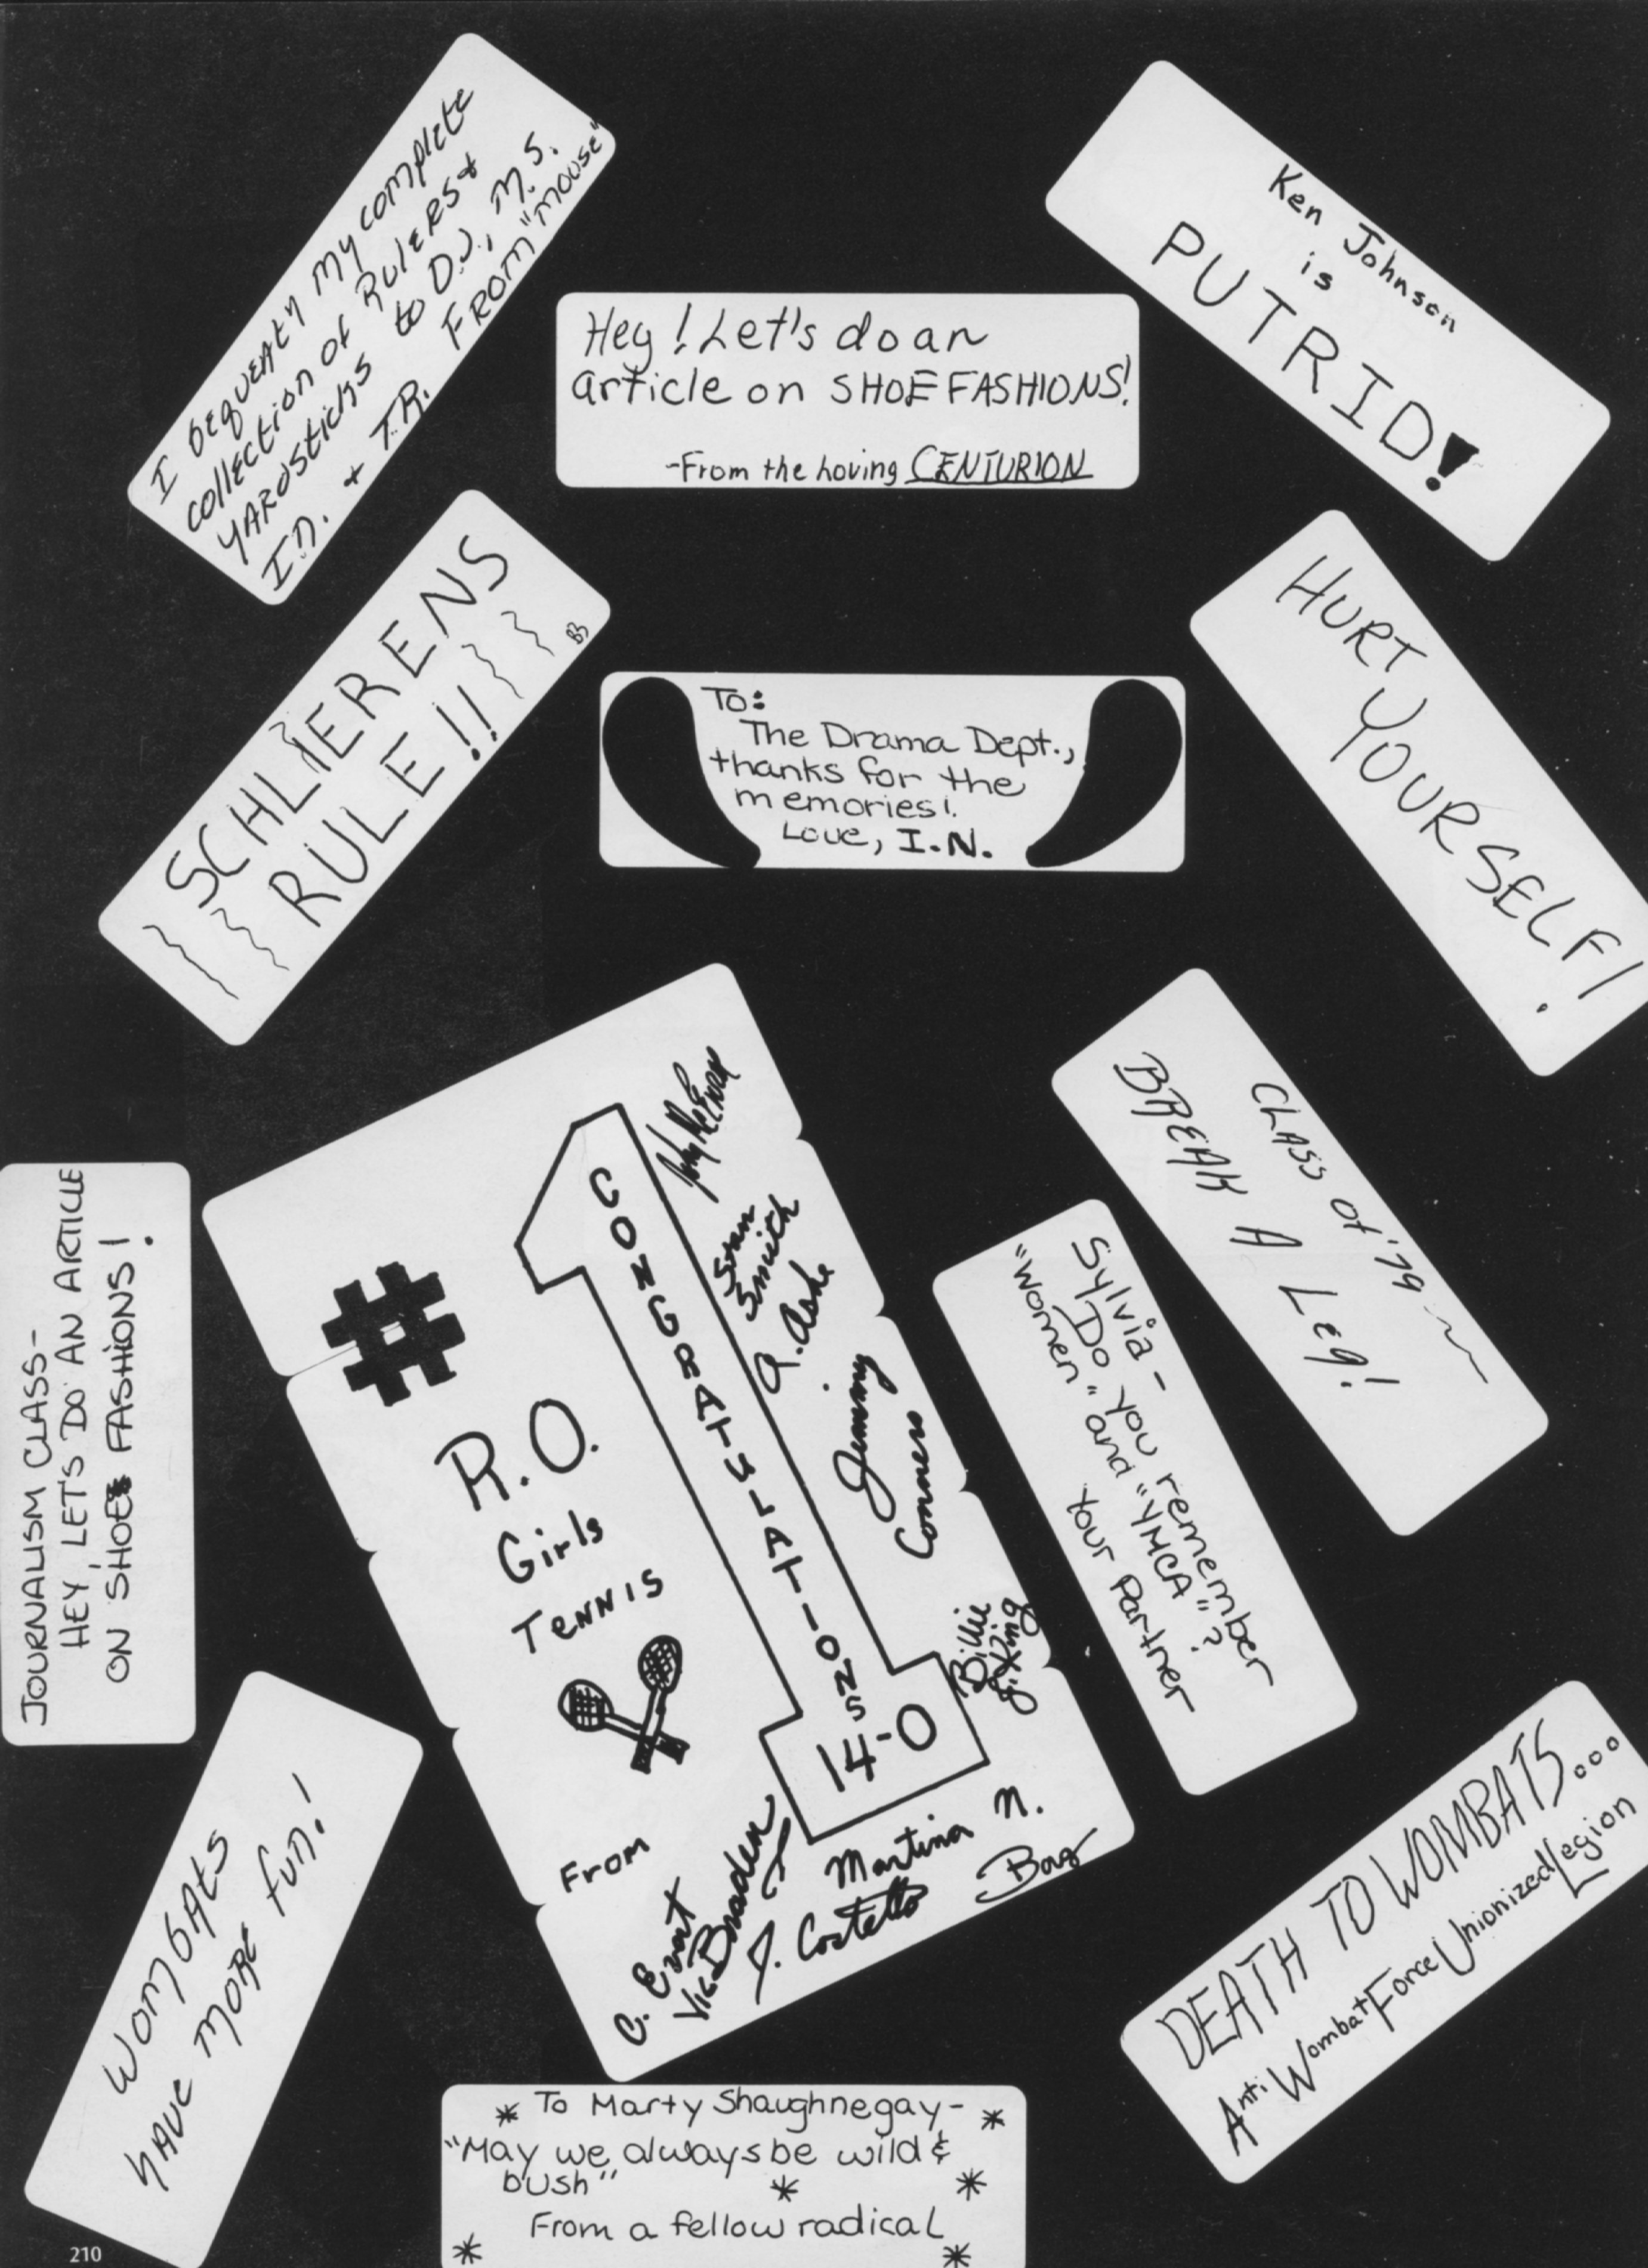 I bequeath my complete
collection of Rulers &
yardsticks to D.J., M.S.
I.N. & T.R.
FROM "MOUSE"
Ken Johnson
is
PUTRID!
Hey! Let's do an
article on SHOE FASHIONS!
-From the Loving CENTURION
SCHLIERENS
RULE!!
BB
To:
The Drama Dept.,
thanks for the
memories!
Love, I.N.
HURT
YOURSELF!
CLASS of '79
BREAK A Leg!
Sylvia -
Do you remember
"Women" and "YMCA"?
Your Partner
JOURNALISM CLASS-
HEY, LET'S DO AN ARTICLE
ON SHOE FASHIONS!
# 1
CONGRATULATIONS
14-0
R.O.
Girls
TENNIS
From
John McEnroe
Stan
Smith
A. Ashe
Jimmy
Conners
Billie
J. King
Martina N.
Borg
J. Costello
Vic Braden
C. Evert
WOMBATS
HAVE MORE FUN!
DEATH TO WOMBATS...
Anti Wombat Force Unionized Legion
To Marty Shaughnegay-
"May we always be wild &
bush"
From a fellow radical
210